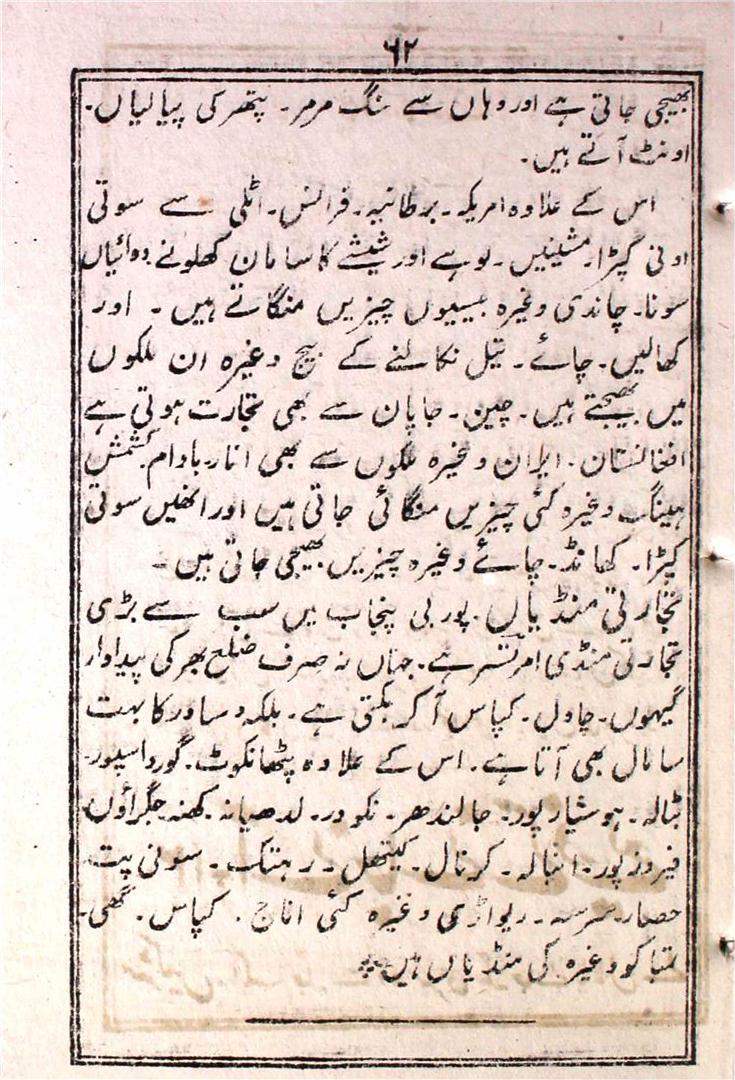 ۶۲
بھیجی جاتی ہے اور وہاں سے سنگ مرمر۔ پتھر کی پیالیاں۔
اونٹ آتے ہیں۔
اس کے علاوہ امریکہ۔ برطانیہ۔ فرانس۔ اٹلی سے سوتی
اونی کپڑا۔ مشینیں۔ لوہے اور شیشے کا سامان کھلونے دوائیاں
سونا۔ چاندی وغیرہ بیسیوں چیزیں منگاتے ہیں۔ اور
کھالیں۔ چائے۔ تیل نکالنے کے بیج وغیرہ ان ملکوں
میں بھیجتے ہیں۔ چین۔ جاپان سے بھی تجارت ہوتی ہے
افغانستان۔ ایران وغیرہ ملکوں سے بھی انار۔ بادام۔ کشمش
ہینگ وغیرہ کئی چیزیں منگائی جاتی ہیں اور انھیں سوتی
کپڑا۔ کھانڈ۔ چائے وغیرہ چیزیں بھیجی جاتی ہیں۔
تجارتی منڈیاں۔ پوربی پنجاب میں سب سے بڑی
تجارتی منڈی امرتسر ہے۔ جہاں نہ صرف ضلع بھر کی پیداوار
گیہوں۔ چاول۔ کپاس آ کر بکتی ہے۔ بلکہ دساور کا بہت
سا مال بھی آتا ہے۔ اس کے علاوہ پٹھانکوٹ۔ گورداسپور۔
بٹالہ۔ ہوشیارپور۔ جالندھر۔ نکودر۔ لدھیانہ۔ کھنہ۔ جگراؤں
فیروزپور۔ انبالہ۔ کرنال۔ کیتھل۔ رہتک۔ سونی پت
حصار۔ سرسہ۔ ریواڑی وغیرہ کئی اناج۔ کپاس۔ گھی۔
تمباکو وغیرہ کی منڈیاں ہیں۔